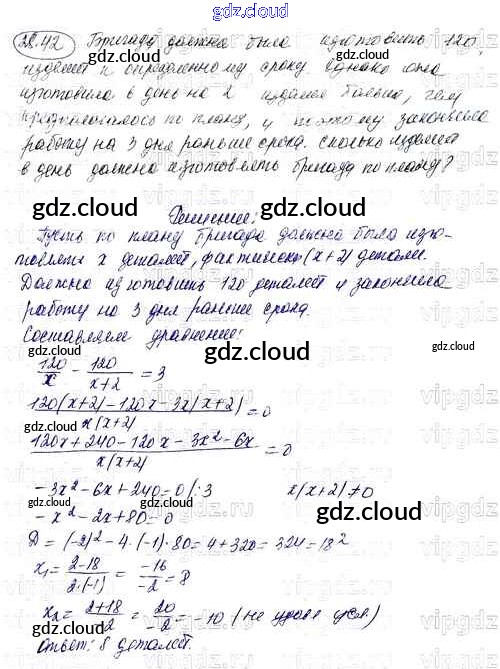 28.42 Бригада должна была изготовить 120
изделий к определенному сроку однако она
изготовила в день на 2 изделия больше, чем
предполагалось по плану, и поэтому закончила
работу на 3 дня раньше срока. Сколько изделий
в день должна изготовлять бригада по плану?
gdz.cloud gdz.cloud
Решение:
Пусть по плану бригада должна была изго-
товлять x деталей, фактически (x+2) детали.
Должна изготовить 120 деталей и закончила
работу на 3 дня раньше срока.
Составляем уравнение:
120/x - 120/(x+2) = 3
(120(x+2)-120x-3x(x+2))/(x(x+2)) = 0
(120x+240-120x-3x²-6x)/(x(x+2)) = 0
-3x²-6x+240=0 /:3 x(x+2)≠0
-x²-2x+80=0
D=(-2)²-4·(-1)·80=4+320=324=18²
x₁ = (2-18)/(2·(-1)) = -16/-2 = 8
x₂ = (2+18)/-2 = 20/-2 = -10 (не удовл. усл.)
Ответ: 8 деталей.